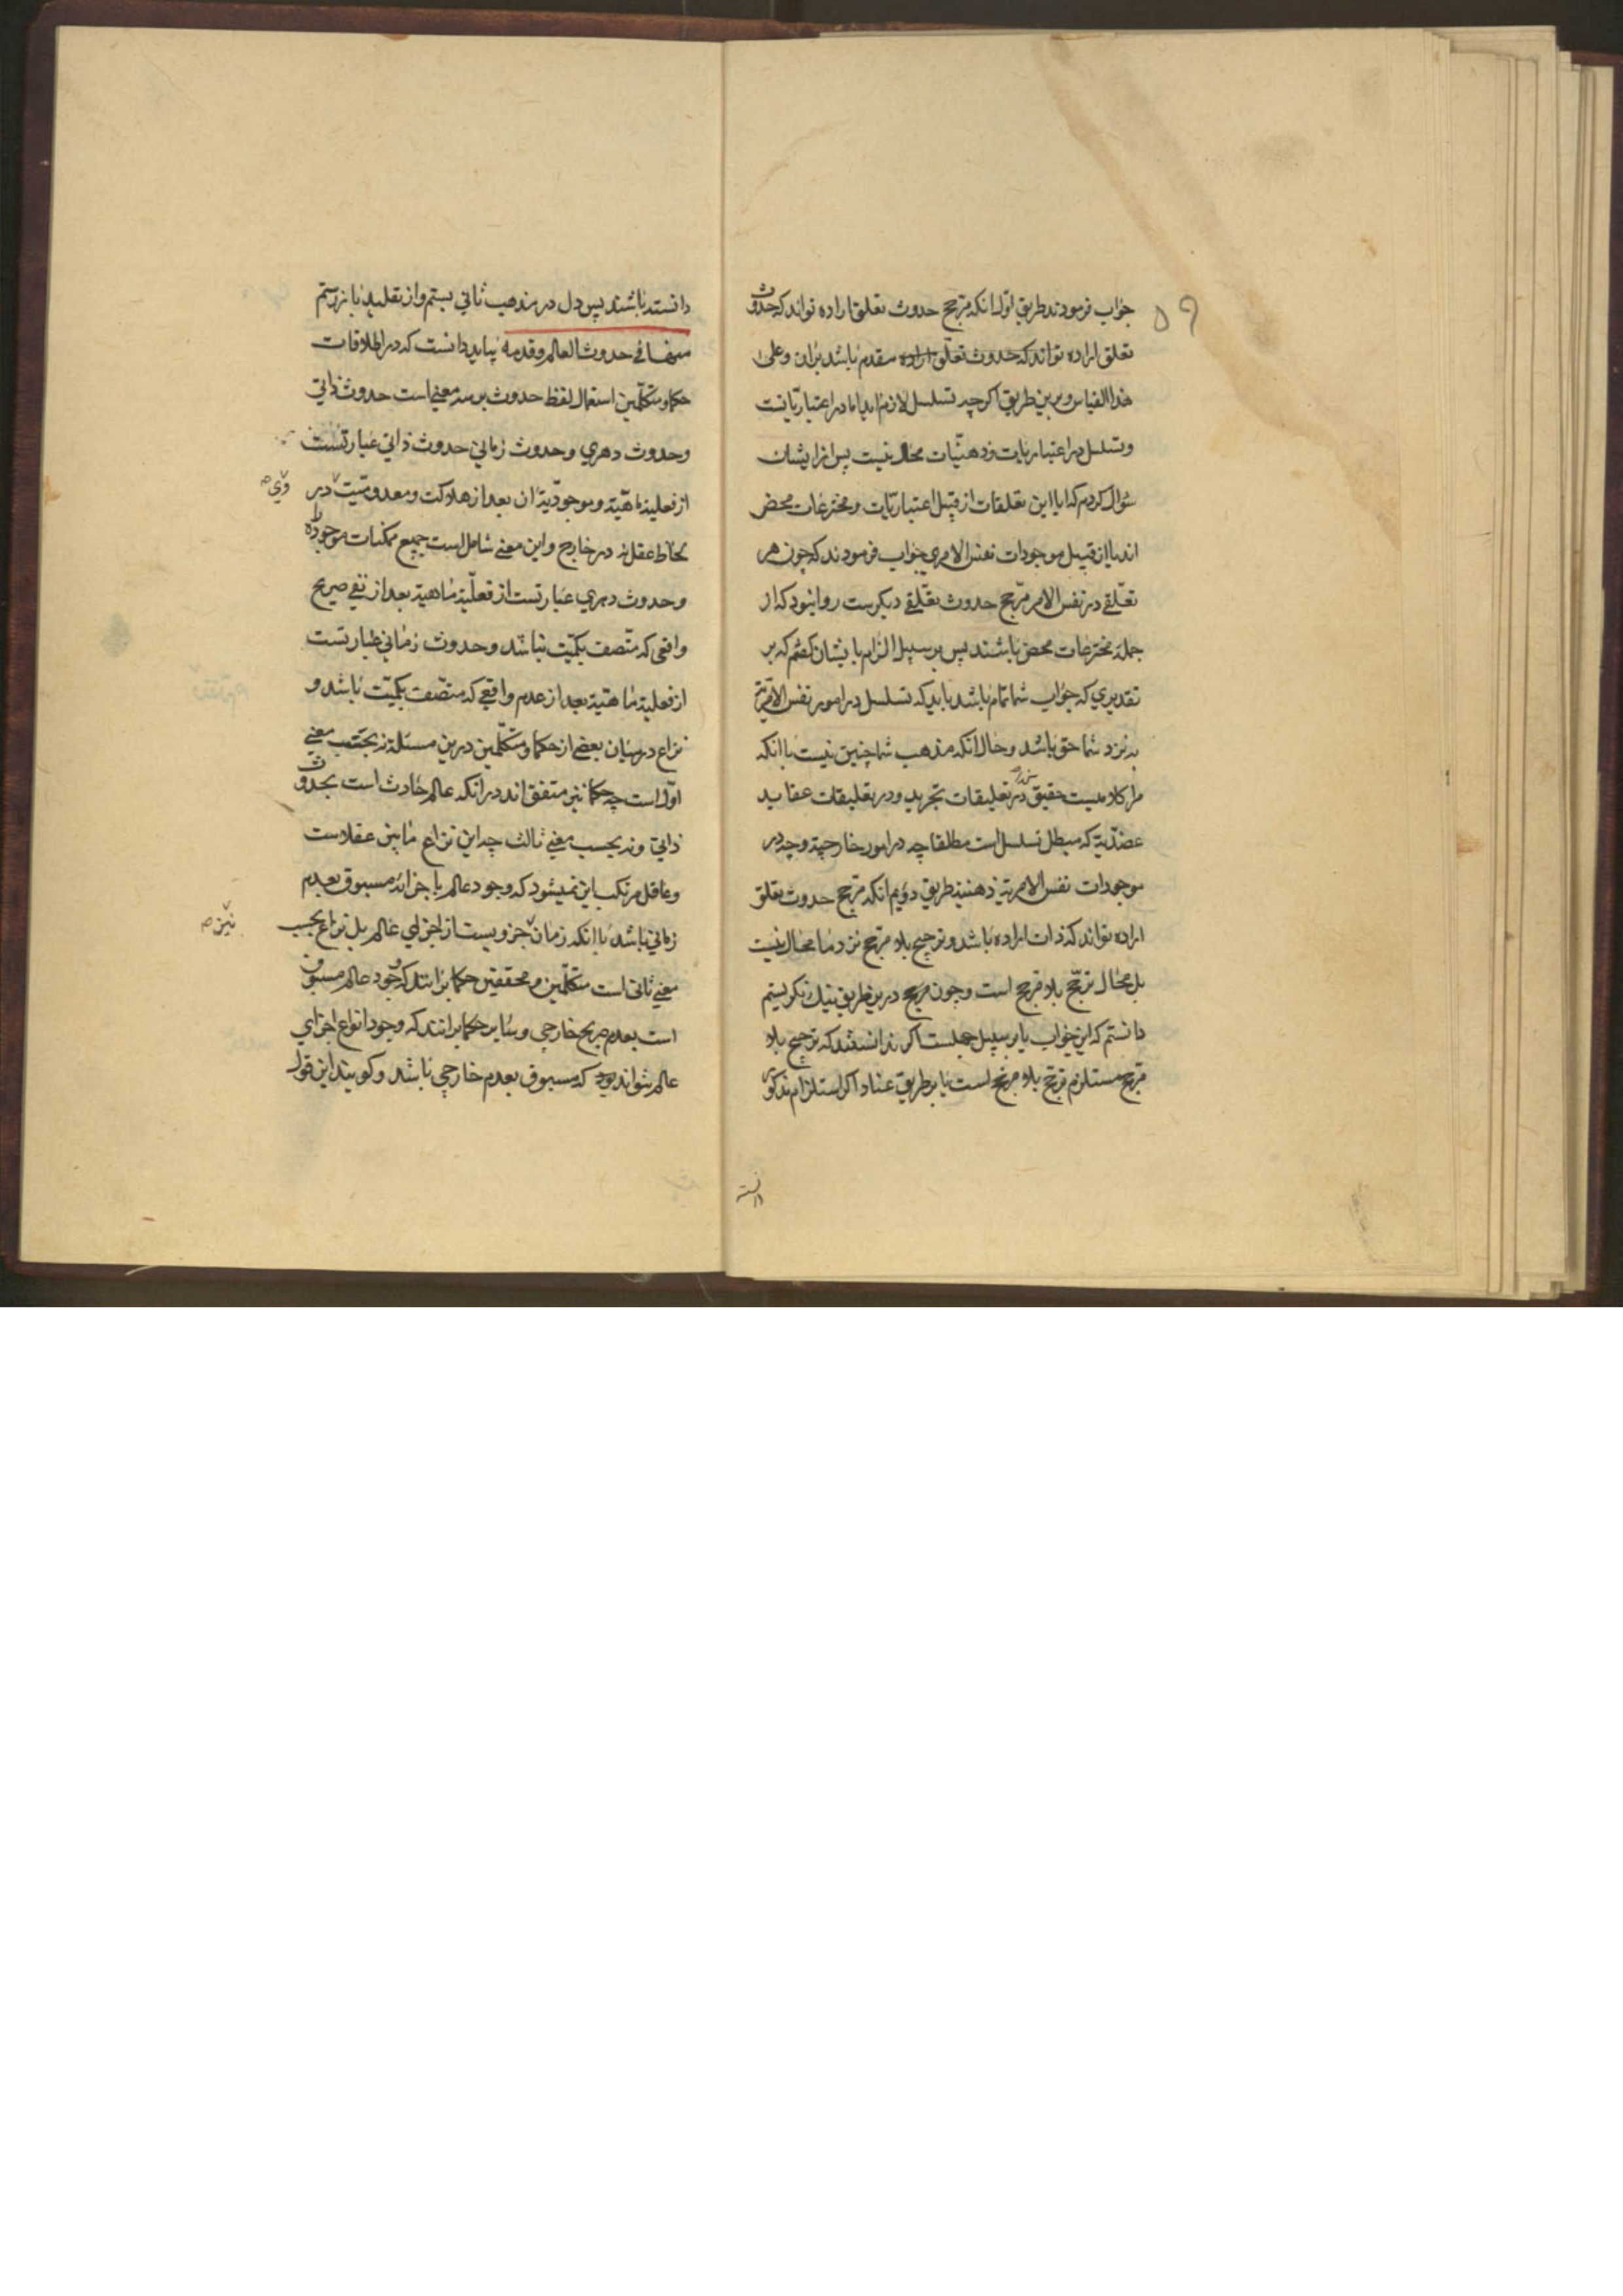 ۵۹
جواب فرمودند طریق اول انکه مرجح حدوث تعلق اراده تواند که حدوث
تعلق اراده تواند که حدوث تعلق اراده مقدم باشد بران وعلی
هذا القیاس وبرین طریق اکرچه تسلسل لازم اید اما در اعتباریاتست
وتسلسل در اعتباریات وذهنیات محال نیست پس از ایشان
سؤال کردم که ایا این تعلقات از قبیل اعتباریات ومخترعات محض
اند یا از قبیل موجودات نفس الامری جواب فرمودند که چون هر
تعلقی در نفس الامر مرجح حدوث تعلقی دیکرست روا نبود که از
جمله مخترعات محض باشند پس بر سبیل الزام با یشان کفتم که بر
تقدیری که جواب شما تمام باشد باید که تسلسل در امور نفس الامریة
به نزد شما حق باشد وحال انکه مذهب شما چنین نیست با انکه
مرا کلامیست حقیق در تعلیقات تجرید ودر تعلیقات عقاید
عضدیة که مبطل تسلسل است مطلقا چه در امور خارجیة وچه در
موجودات نفس الامریة ذهنیة طریق دویم انکه مرجح حدوث تعلق
اراده تواند که ذات اراده باشد وترجیح بلا مرجح نزد ما محال نیست
بل محال ترجح بلا مرجح است وچون مرجح درین طریق نیک نکریستم
دانستم که این جواب یا بر سبیل جهلست اکر ندانستند که ترجیح بلا
مرجح مستلزم ترجح بلا مرجح است یا بر طریق عناد اکر استلزام مذکور
دانسته
دانسته باشند پس دل در مذهب ثانی بستم واز تقلید باز رستم
منها فی حدوث العالم وقدمه بباید دانست که در اطلاقات
حکما ومتکلمین استعمال لفظ حدوث بر سه معنی است حدوث ذاتی
وحدوث دهری وحدوث زمانی حدوث ذاتی عبارتست
از فعلیة ماهیة وموجودیة ان بعد از هلاکت ومعدومیت در
وی
لحاظ عقل نه در خارج واین معنی شامل است جمیع ممکنات موجوده را
وحدوث دهری عبارتست از فعلیة ماهیة بعد از نفی صریح
واقعی که متصف بکمیت نباشد وحدوث زمانی عبارتست
از فعلیة ماهیة بعد از عدم واقعی که متصف بکمیت باشد و
نزاع در میان بعضی از حکما ومتکلمین درین مسئله نه بحسب معنی
اول است چه حکما نیز متفق اند در انکه عالم حادث است بحدوث
ذاتی ونه بحسب معنی ثالث چه این نزاع ما بین عقلاست
وعاقل مرتکب این نمیشود که وجود عالم باجزائه مسبوق بعدم
زمانی باشد با انکه زمان جزویست از اجزای عالم بل نزاع بحسب
نیز
معنی ثانی است متکلمین ومحققین حکما برانند که وجود عالم مسبوق
است بعدم صریح خارجی وسایر حکما برانند که وجود انواع اجزای
عالم نتواند بود که مسبوق بعدم خارجی باشد وکویند این قول